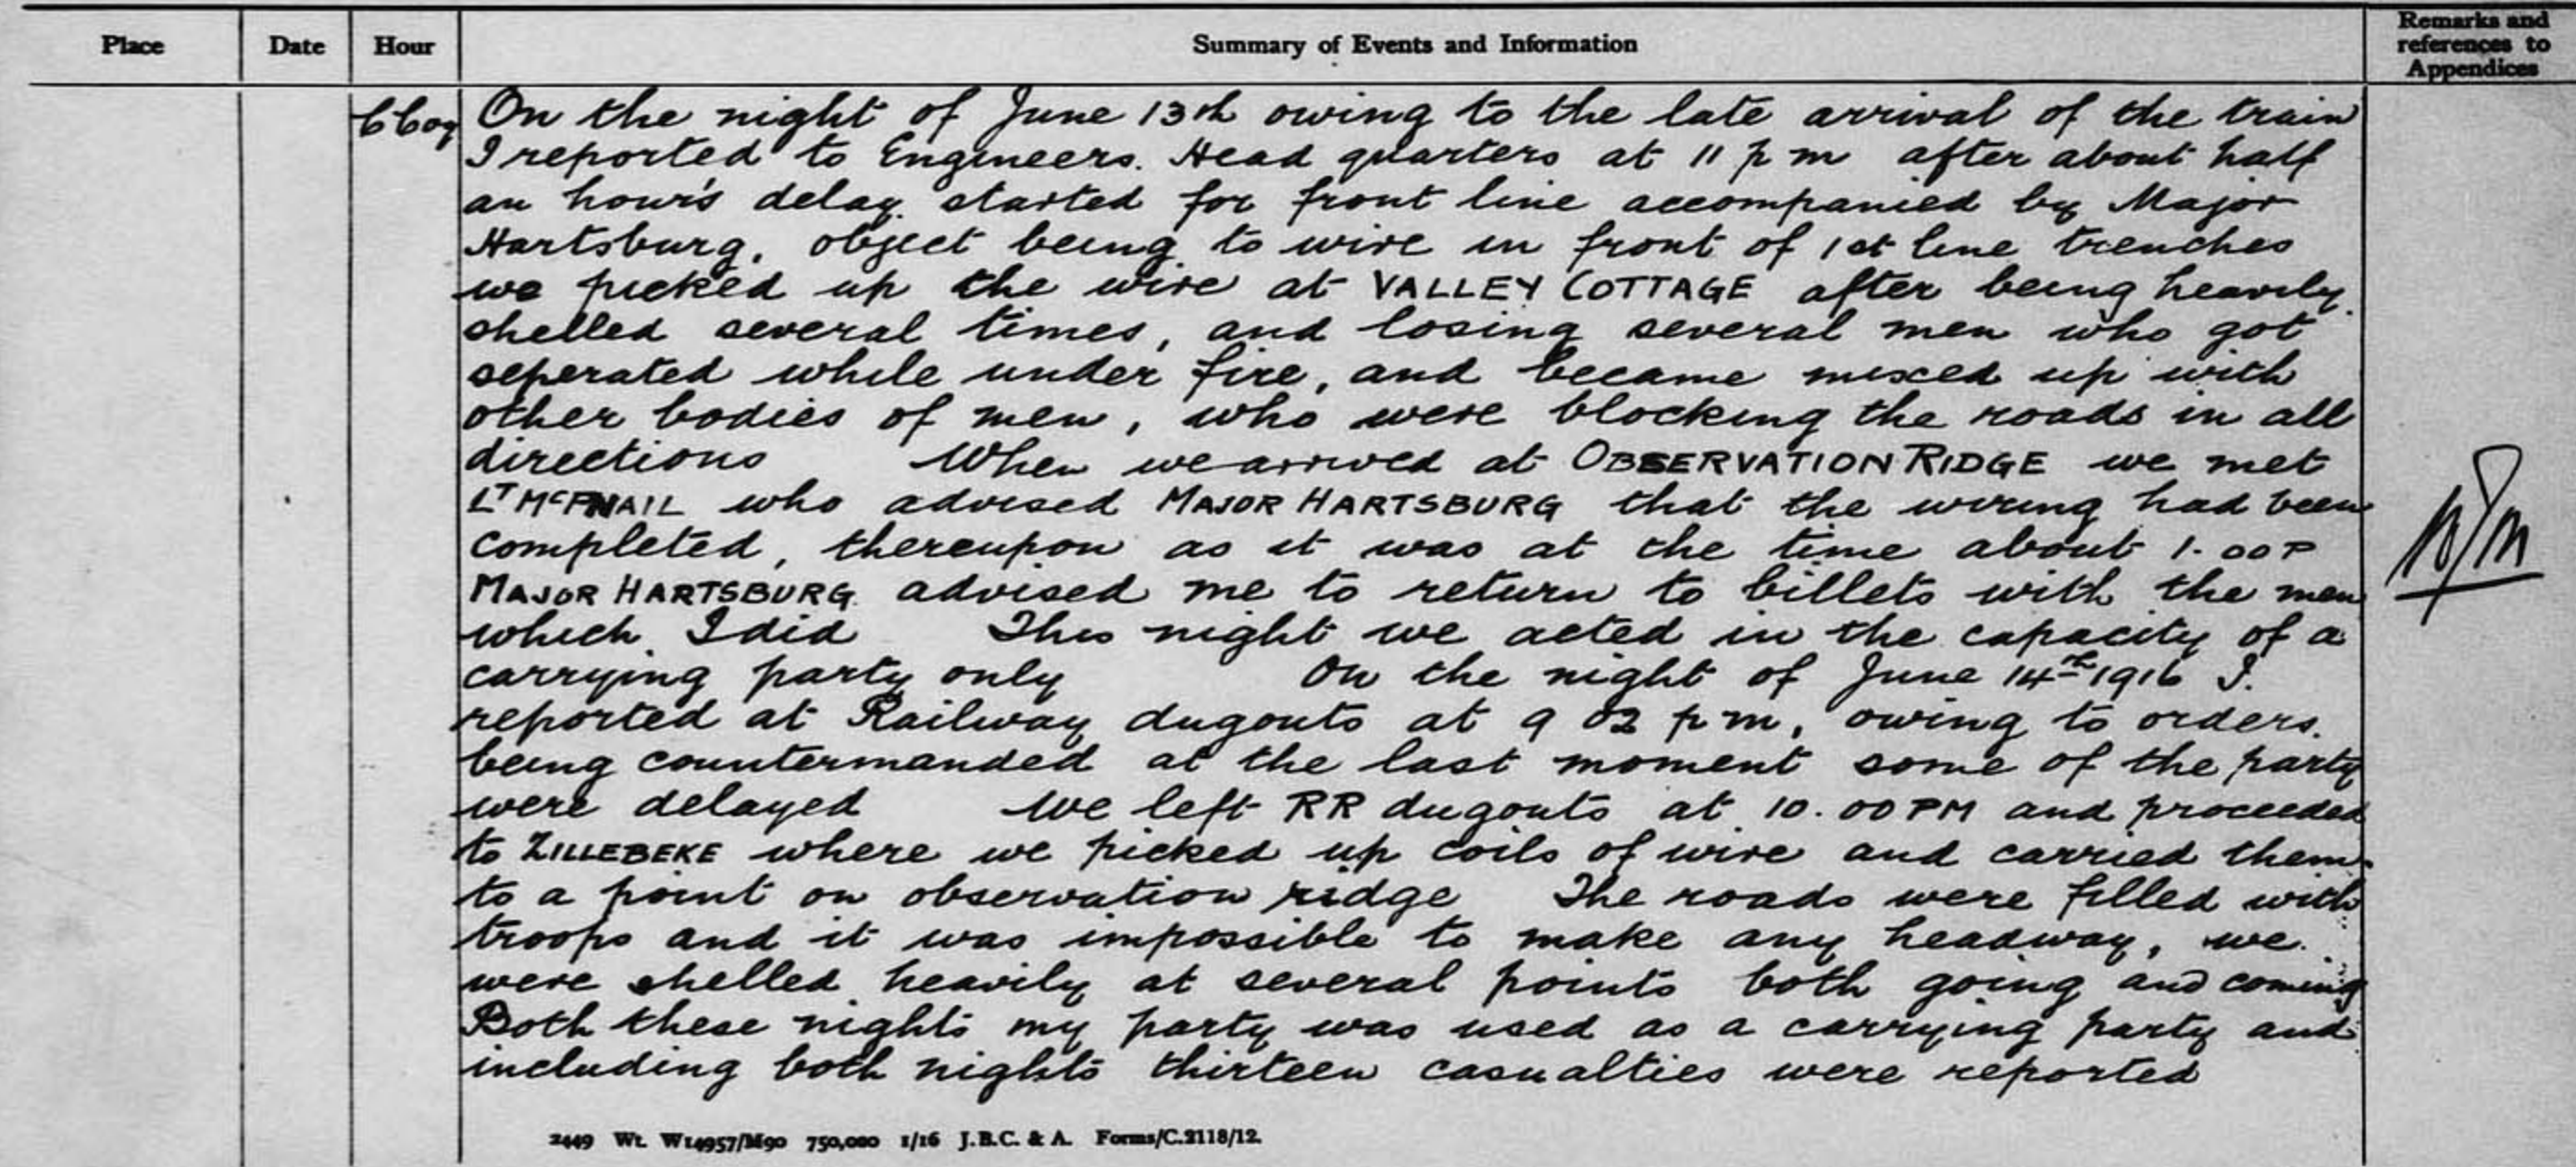 Place Date Hour Summary of Events and Information Remarks and references to Appendices
C Coy On the night of June 13th owing to the late arrival of the train
I reported to Engineers. Head quarters at 11 p m after about half
an hour's delay started for front line accompanied by Major
Hartsburg, object being to wire in front of 1st line trenches
we picked up the wire at VALLEY COTTAGE after being heavily
shelled several times, and losing several men who got
seperated while under fire, and became mixed up with
other bodies of men, who were blocking the roads in all
directions When we arrived at OBSERVATION RIDGE we met
LT McPHAIL who advised MAJOR HARTSBURG that the wiring had been
completed, thereupon as it was at the time about 1.00 P
MAJOR HARTSBURG advised me to return to billets with the men
which I did This night we acted in the capacity of a
carrying party only On the night of June 14th 1916 I.
reported at Railway dugouts at 9 02 p m, owing to orders.
being countermanded at the last moment some of the party
were delayed We left RR dugouts at 10.00 PM and proceeded
to ZILLEBEKE where we picked up coils of wire and carried them
to a point on observation ridge The roads were filled with
troops and it was impossible to make any headway, we
were shelled heavily at several points both going and coming
Both these nights my party was used as a carrying party and
including both nights thirteen casualties were reported
2449 Wt. W14957/M90 750,000 1/16 J.B.C. & A. Forms/C.2118/12.